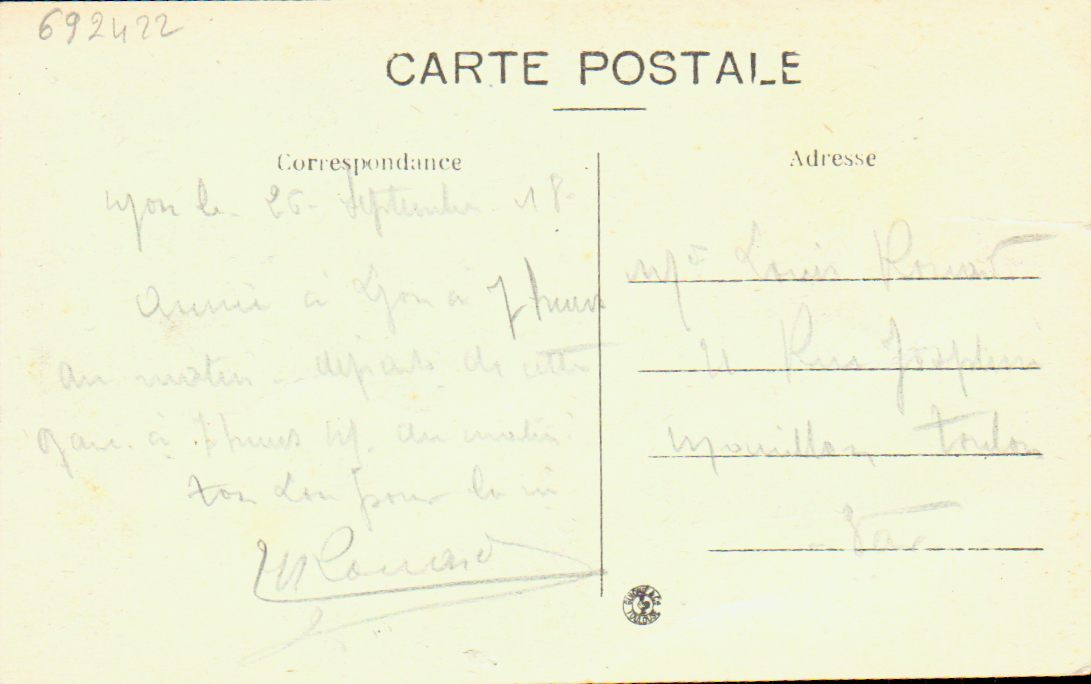 692422
CARTE POSTALE
Correspondance
Adresse
Lyon le 26 Septembre 18
Arrivé à Lyon à 7 heures
du matin départ de cette
gare à 7 heures du matin
ton Lou pour la vie
Rouard
Louis Rouard
Rue Joséphine
Mourillon Toulon
Var
TOULOUSE